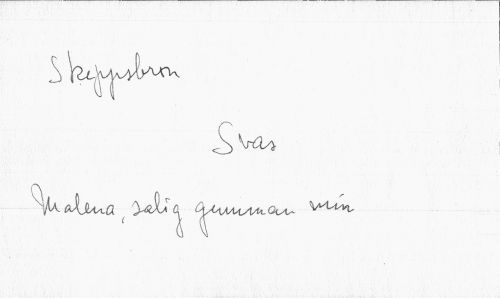 Skeppsbron
Svas
Malena, salig gumman min